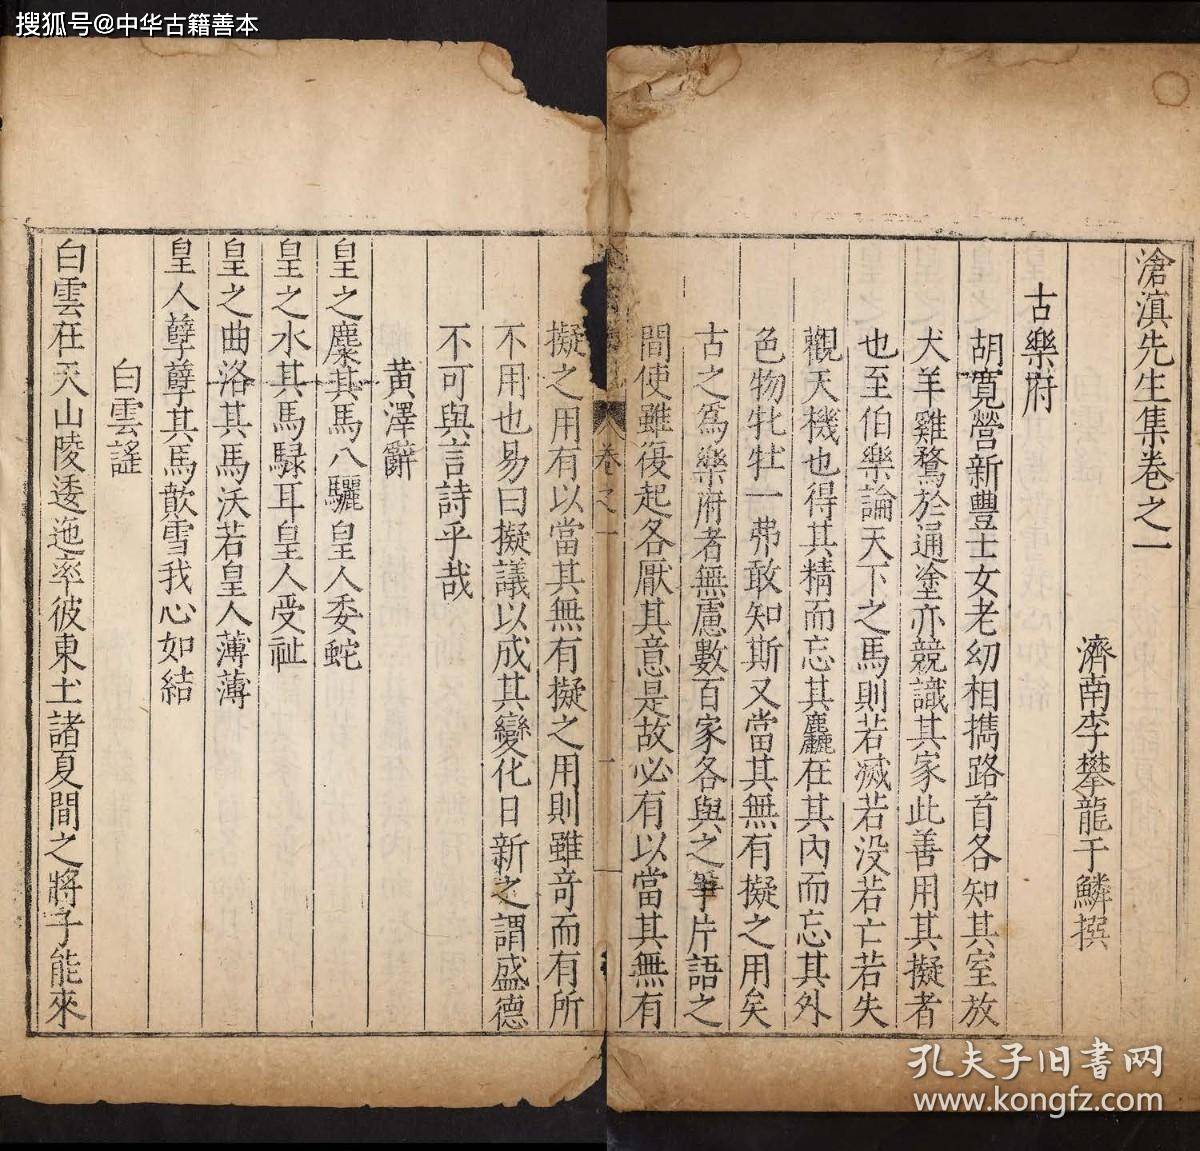 搜狐号@中华古籍善本
滄溟先生集卷之一
濟南李攀龍于鱗撰
古樂府
胡寬營新豐士女老幼相攜路首各知其室放
犬羊雞鶩於通塗亦競識其家此善用其擬者
也至伯樂論天下之馬則若滅若没若亡若失
觀天機也得其精而忘其麤在其內而忘其外
色物牝牡一弗敢知斯又當其無有擬之用矣
古之爲樂府者無慮數百家各與之爭片語之
間使雖復起各厭其意是故必有以當其無有
卷之一
一
擬之用有以當其無有擬之用則雖奇而有所
不用也易曰擬議以成其變化日新之謂盛德
不可與言詩乎哉
黄澤辭
皇之麋其馬八驪皇人委蛇
皇之水其馬騄耳皇人受祉
皇之曲洛其馬沃若皇人薄薄
皇人孽孽其馬歕雪我心如結
白雲謠
白雲在天山陵逶迤率彼東土諸夏間之將子能來
孔夫子旧书网
www.kongfz.com